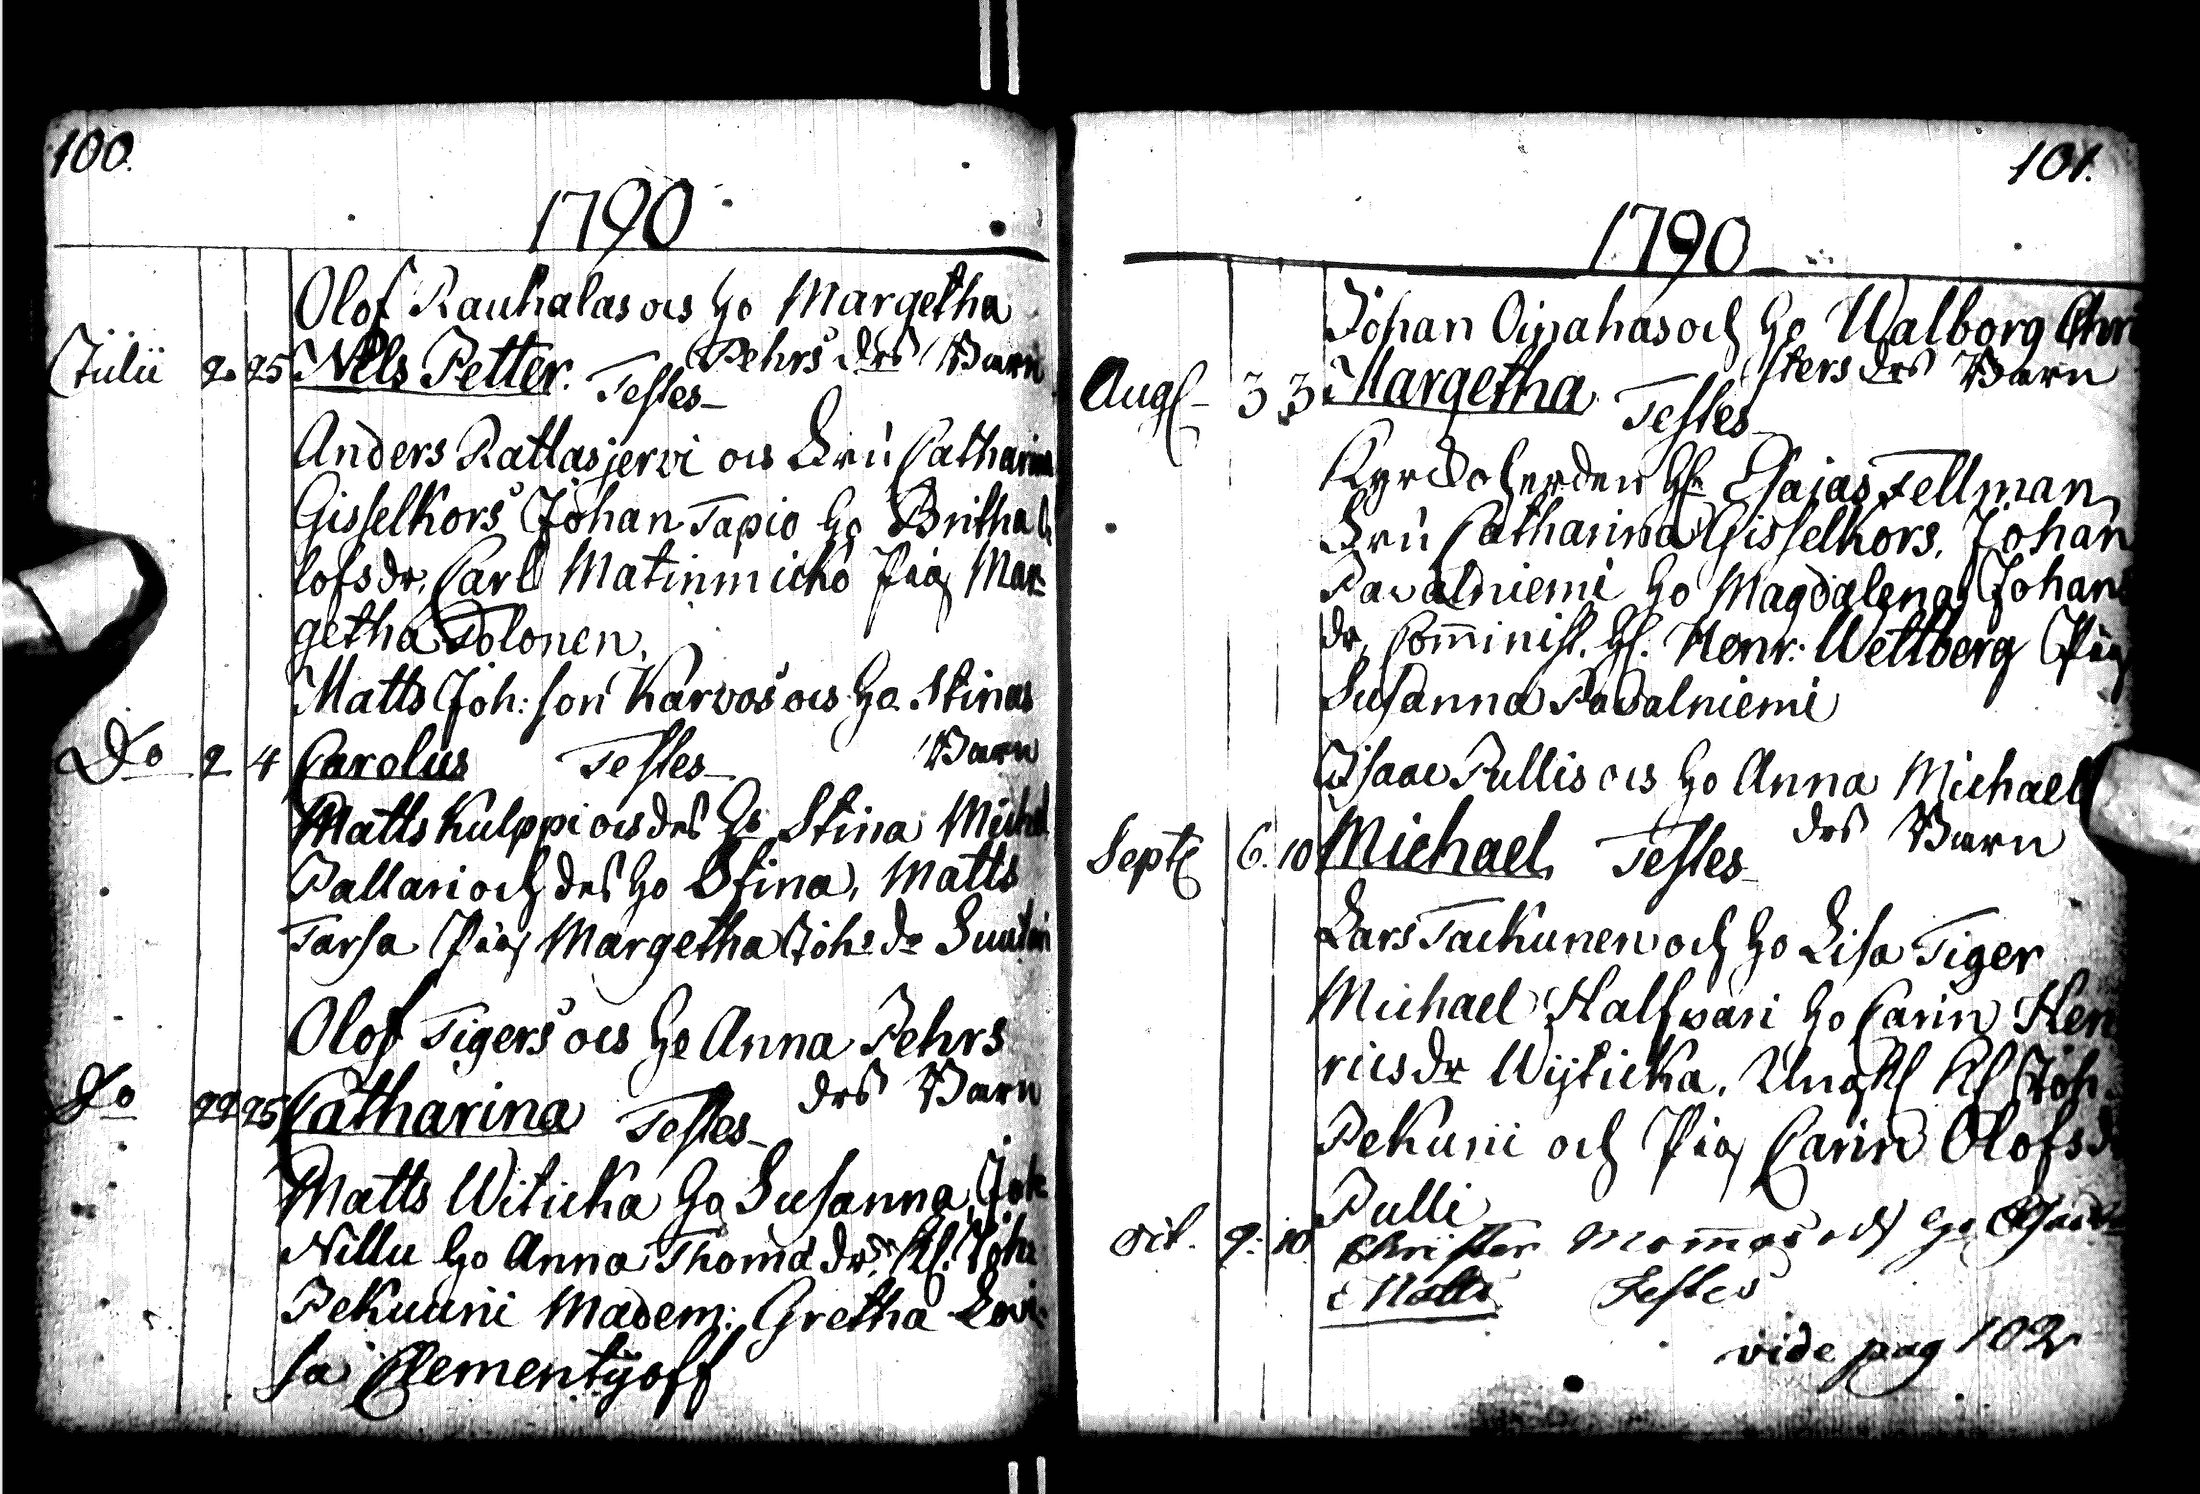 100.
1790
Olof Rauhalas ocs Ho Margetha
Pehrs drs Barn
Julii 2. 25 Nils Petter. Testes
Anders Ratlasjervi ocs Fru Catharina
Gisselkors Johan Tapio Ho Britha O
lofsdr, Carl Matinmicko Pig Mar-
getha Tolonen.
Matts Joh: son Karvos ocs Ho Stinas
Barn
Do 2 4 Carolus Testes
Matts Kulppi ocs des Ho Stina Michel
Pallari och des Ho Stina, Matts
Tarsa Pig Margetha Johs dr Suutari
Olof Tigers ocs Ho Anna Pehrs
drs Barn
Do 22 25 Catharina Testes
Matts Witicka Ho Susanna, Joh
Nillu Ho Anna Thoma dr. Kl. Joh
Pekuuni Madem: Gretha Lovi-
sa Clementjeoff
101.
1790
Johan Oinahas och Ho Walborg Chri
sters drs Barn
Aug 3 3 Margetha Testes
Kyrckoherden H Esaias Fellman
Fru Catharina Gisselkors, Johan
Pavalniemi Ho Magdalena Johans
dr, Comminist. H. Henr: Wettberg Pig
Susanna Pavalniemi
Isaac Pullis ocs Ho Anna Michaels
drs Barn
Sept 6. 10 Michael Testes
Lars Tackunen och Ho Lisa Tiger
Michael Halfvari Ho Carin Hen
rics dr Wijticka, Ungk Kl Joh
Pekuni och Pig Carin Olofsdr
Pulli
Oct. 9: 10 Christer Mommos och Ho
Matts Testes
vide pag 102